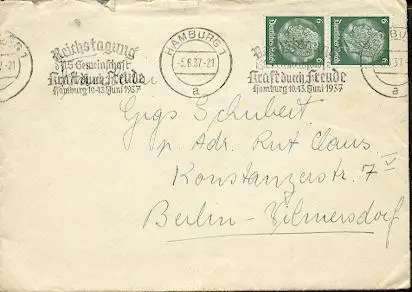 HAMBURG 1
-5.6.37.-21
a
Reichstagung
d. NS-Gemeinschaft
Kraft durch Freude
Hamburg 10.-13. Juni 1937
Reichstagung
Kraft durch Freude
Hamburg 10.-13. Juni 1937
6 6
Deutsches Reich
Deutsches Reich
Schubert
p. Adr. Rut Claus
Konstanzerstr. 7 V
Berlin-Wilmersdorf